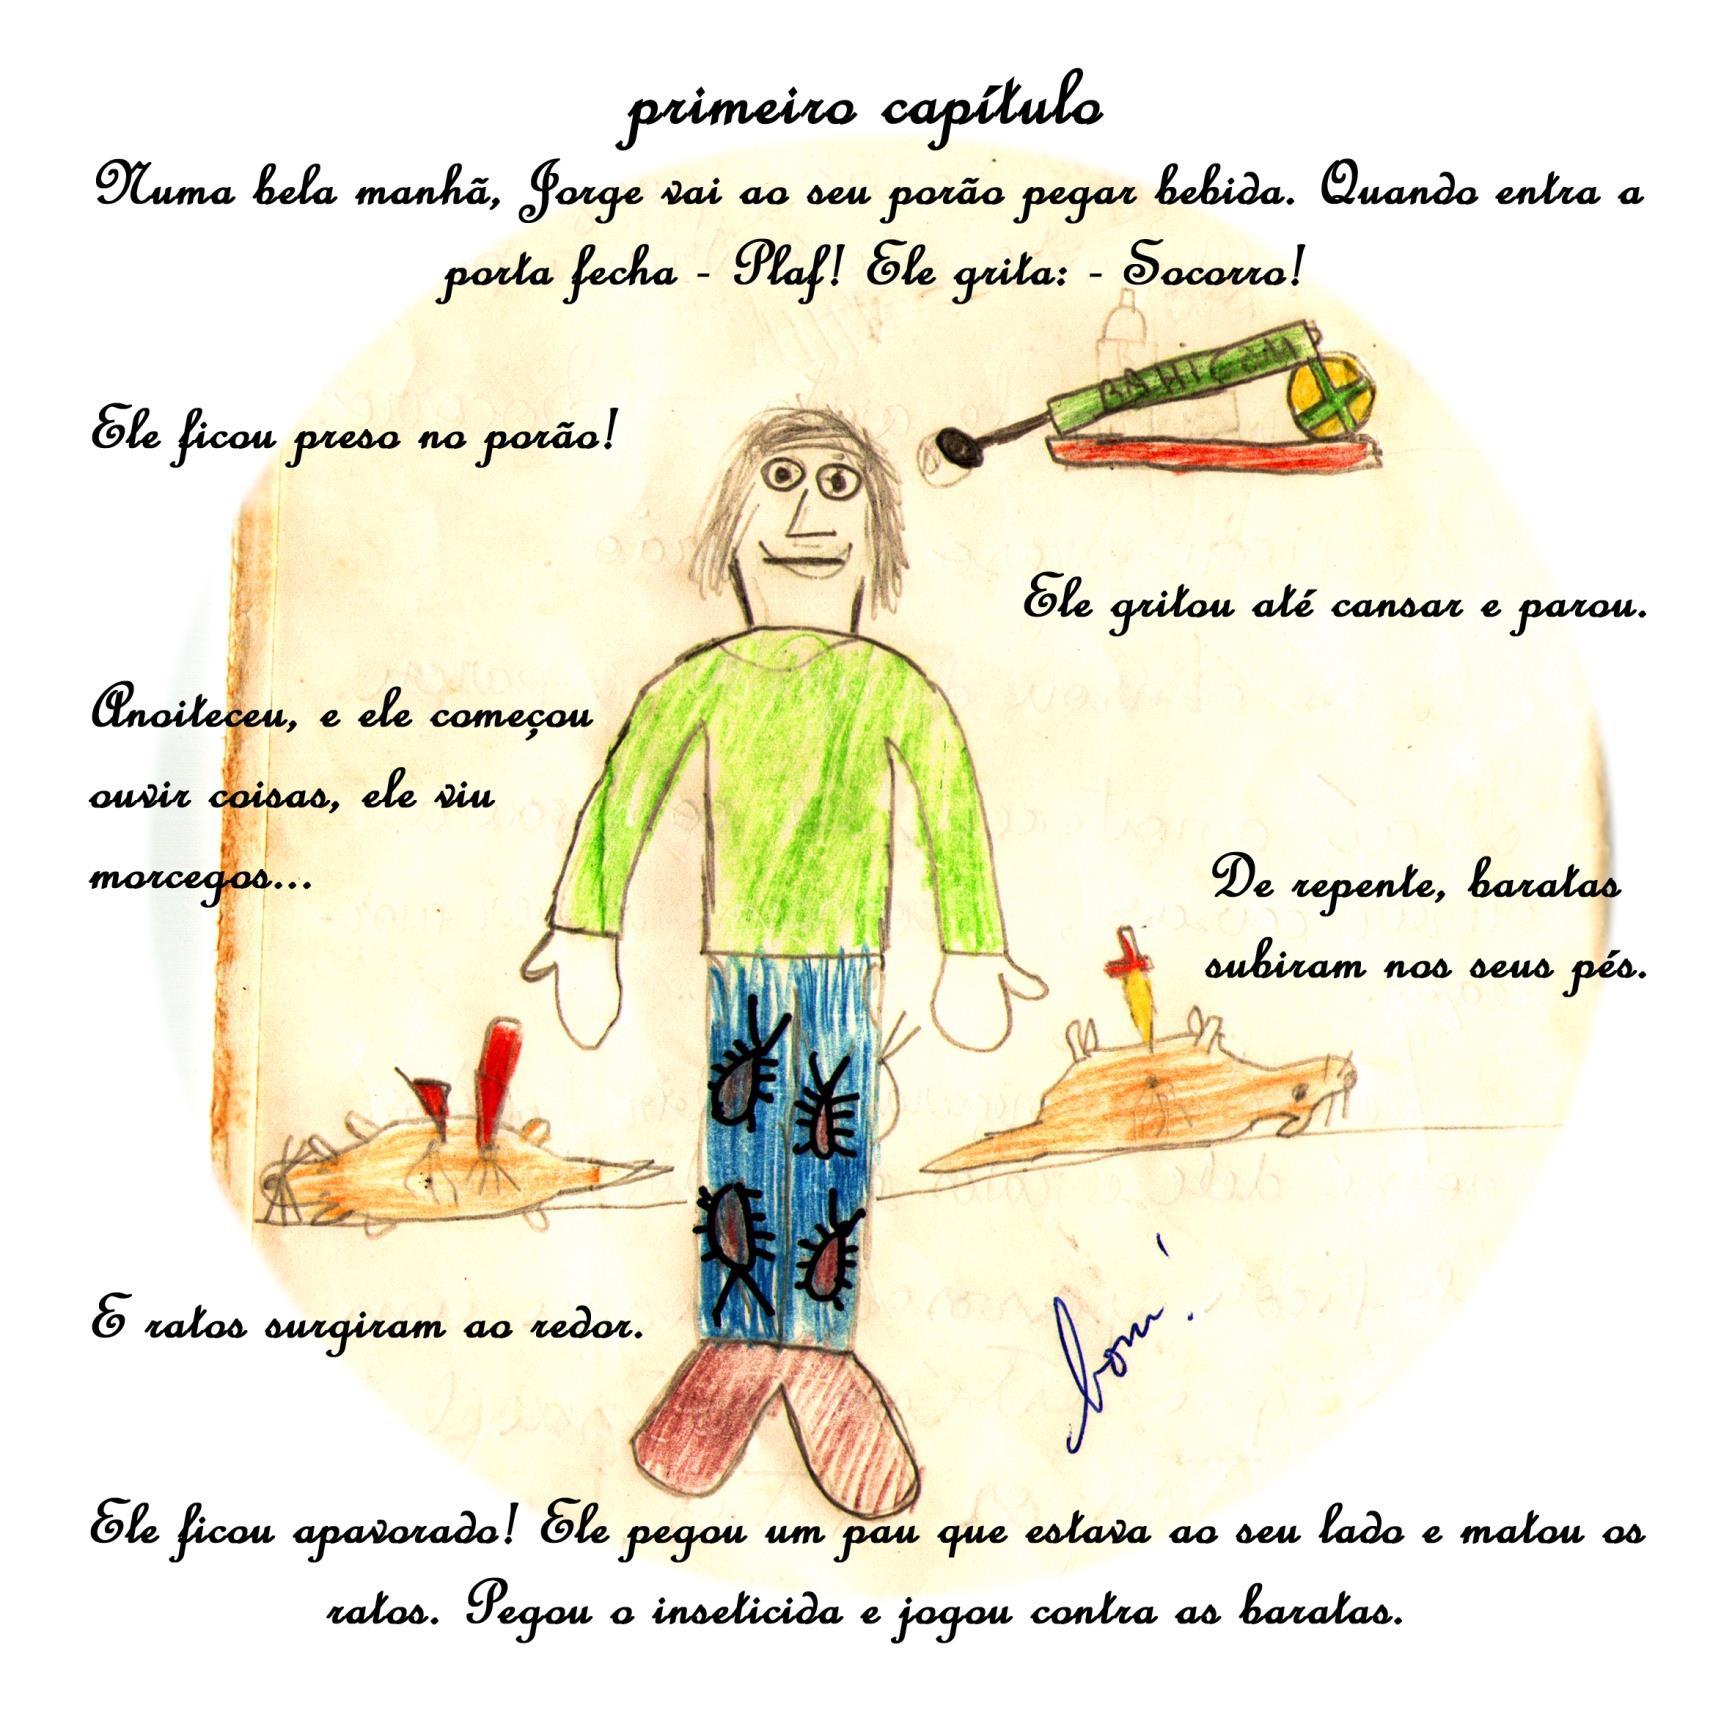 primeiro capítulo
Numa bela manhã, Jorge vai ao seu porão pegar bebida. Quando entra a
porta fecha - Plaf! Ele grita: - Socorro!
Ele ficou preso no porão!
Ele gritou até cansar e parou.
Anoiteceu, e ele começou
ouvir coisas, ele viu
morcegos...
De repente, baratas
subiram nos seus pés.
E ratos surgiram ao redor.
bom!
Ele ficou apavorado! Ele pegou um pau que estava ao seu lado e matou os
ratos. Pegou o inseticida e jogou contra as baratas.